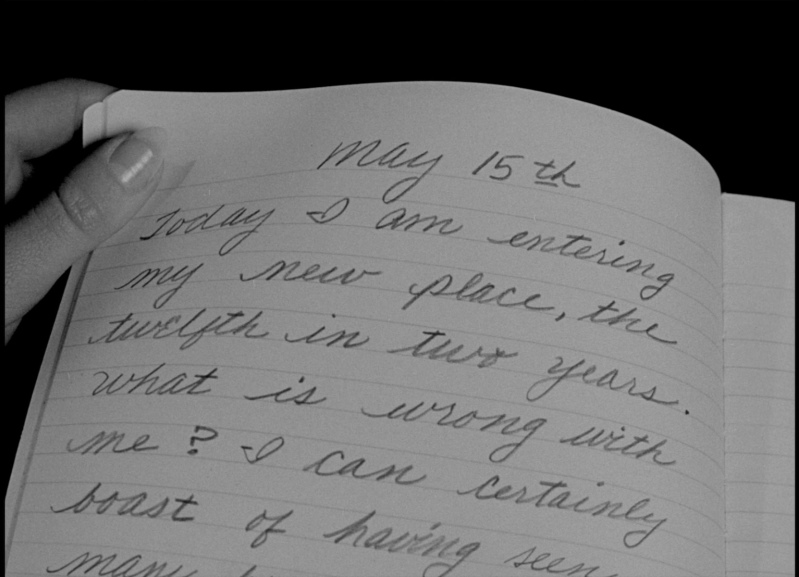 May 15th
Today I am entering
my new place, the
twelfth in two years.
what is wrong with
me? I can certainly
boast of having seen
many